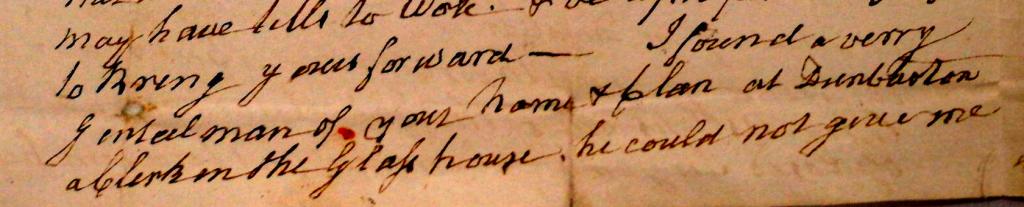 may have tills to Work.
to Kreng yours forward — I found a verry
Genteel man of your name & Clan at Dunbarton
a Clerk in the Glass house. he could not give me